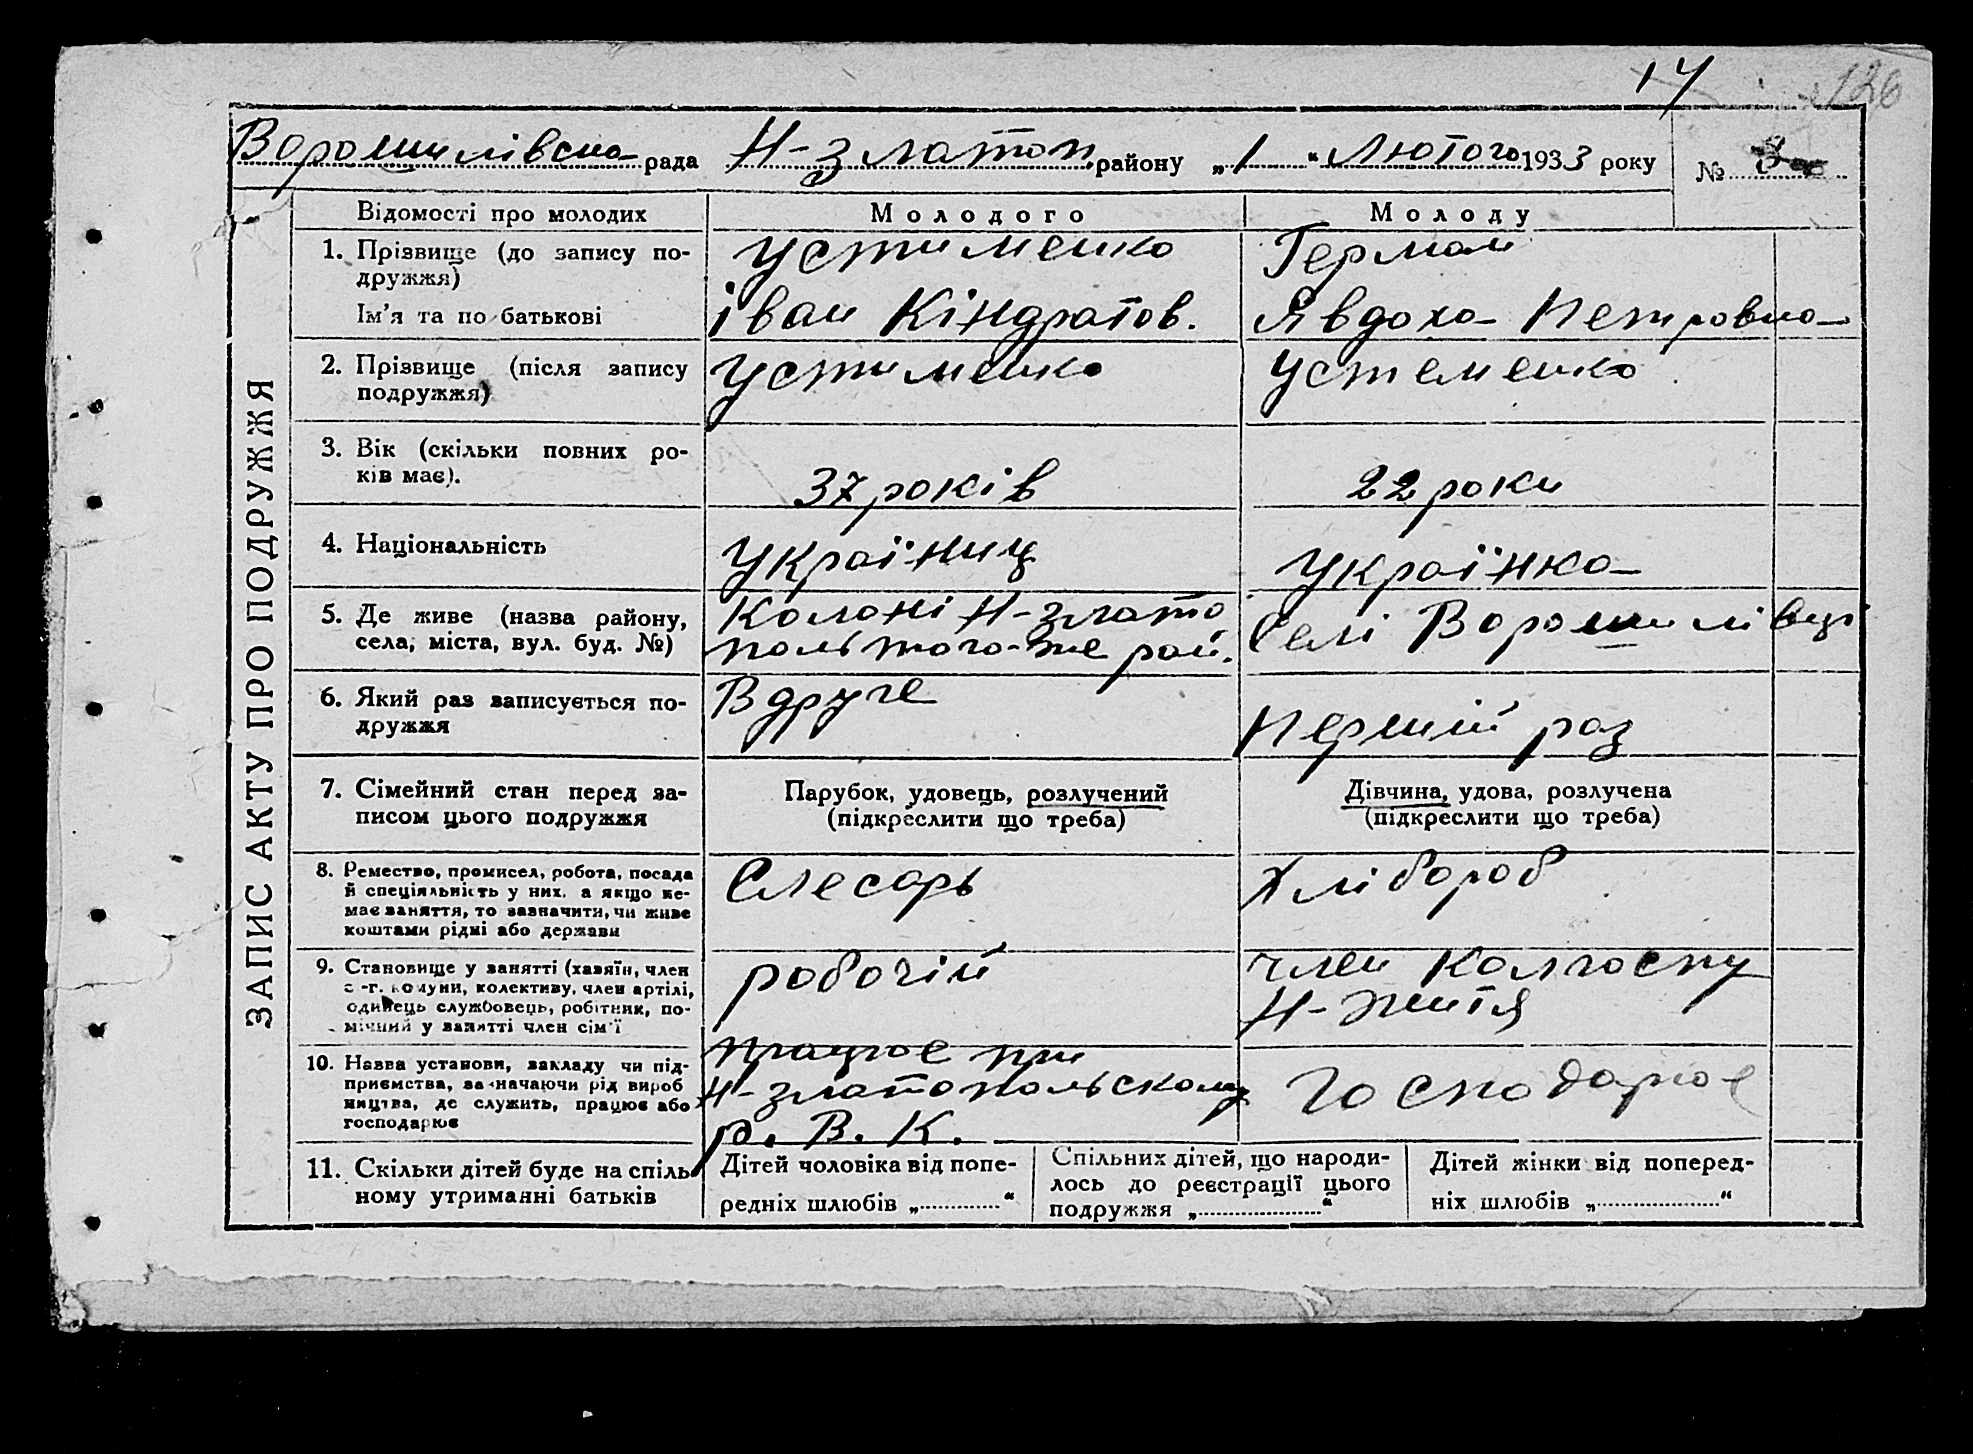 14 126
Ворошилівска рада Н-Златоп. району „1" Лютого 1933 року № 3
ЗАПИС АКТУ ПРО ПОДРУЖЖЯ
Відомості про молодих Молодого Молоду
1. Прізвище (до запису по- Устименко Герман
дружжя)
Ім'я та по батькові Іван Кіндратов. Явдоха Петровна
2. Прізвище (після запису Устименко Устеменко
подружжя)
3. Вік (скільки повних ро-
ків має). 37 років 22 роки
4. Національність Україниц Українка
5. Де живе (назва району, Колоні Н-Злато Селі Ворошилівці
села, міста, вул. буд. №) поль того-же рай.
6. Який раз записується по- Вдруге
дружжя Перший раз
7. Сімейний стан перед за- Парубок, удовець, розлучений Дівчина, удова, розлучена
писом цього подружжя (підкреслити що треба) (підкреслити що треба)
8. Ремество, промисел, робота, посада Слесарь Хлібороб
й спеціяльність у них, а якщо не-
має заняття, то зазначити, чи живе
коштами рідні або держави
9. Становище у занятті (хазяїн, член робочій член колгоспу
с.-г. комуни, колективу, член артілі, Н-Життя
одинець службовець, робітник, по-
мічний у занятті член сім'ї
10. Назва установи, закладу чи під- працює при
приємства, зазначаючи рід вироб Н-Златопольскому Господарює
ництва, де служить, працює або р. В. К.
господарює
11. Скільки дітей буде на спіль Дітей чоловіка від попе- Спільних дітей, що народи- Дітей жінки від поперед-
ному утриманні батьків редніх шлюбів „ " лось до реєстрації цього ніх шлюбів „ "
подружжя „ "